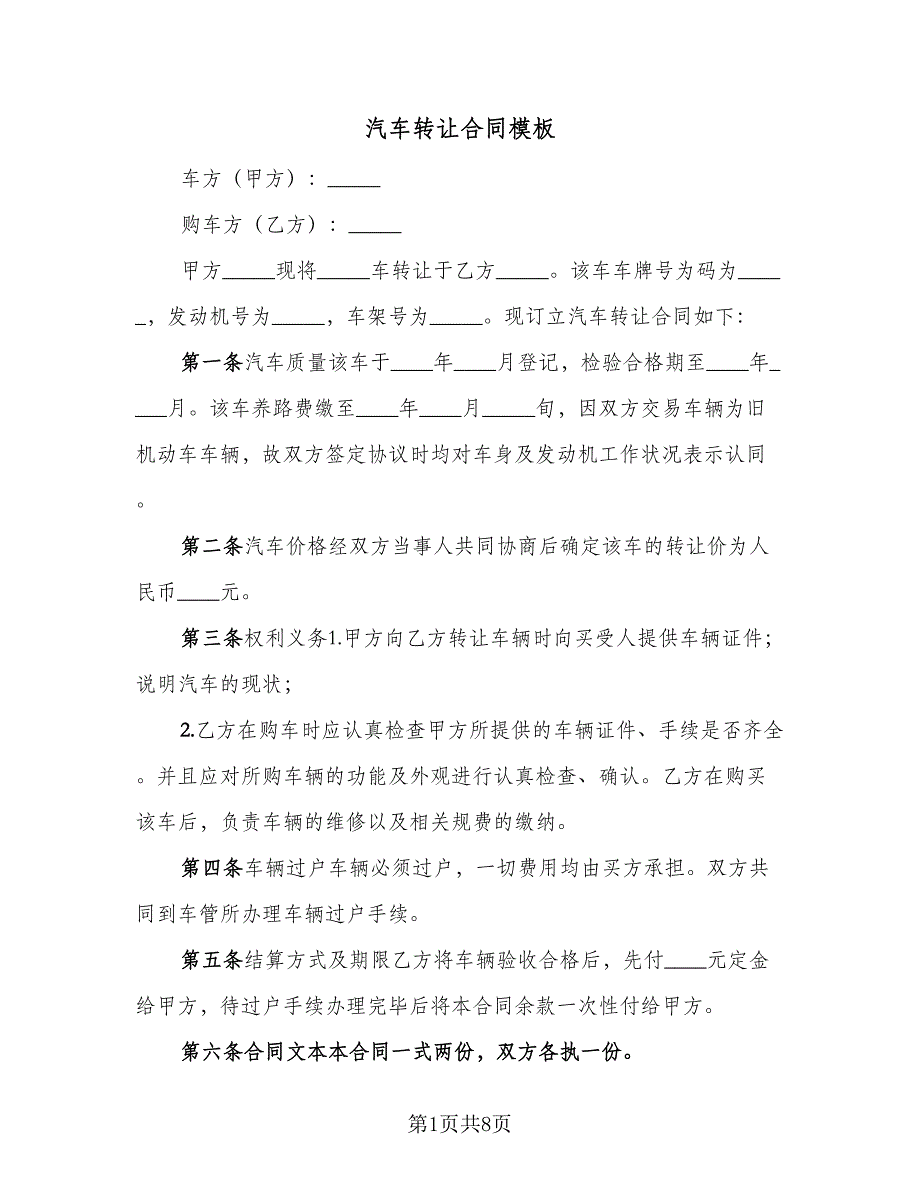 汽车转让合同模板
车方（甲方）：_____
购车方（乙方）：_____
甲方_____现将_____车转让于乙方_____。该车车牌号为码为____
_，发动机号为_____，车架号为_____。现订立汽车转让合同如下：
第一条汽车质量该车于____年____月登记，检验合格期至____年_
___月。该车养路费缴至____年____月_____旬，因双方交易车辆为旧
机动车车辆，故双方签定协议时均对车身及发动机工作状况表示认同
。
第二条汽车价格经双方当事人共同协商后确定该车的转让价为人
民币____元。
第三条权利义务1.甲方向乙方转让车辆时向买受人提供车辆证件；
说明汽车的现状；
2.乙方在购车时应认真检查甲方所提供的车辆证件、手续是否齐全
。并且应对所购车辆的功能及外观进行认真检查、确认。乙方在购买
该车后，负责车辆的维修以及相关规费的缴纳。
第四条车辆过户车辆必须过户，一切费用均由买方承担。双方共
同到车管所办理车辆过户手续。
第五条结算方式及期限乙方将车辆验收合格后，先付____元定金
给甲方，待过户手续办理完毕后将本合同余款一次性付给甲方。
第六条合同文本本合同一式两份，双方各执一份。
第1页共8页